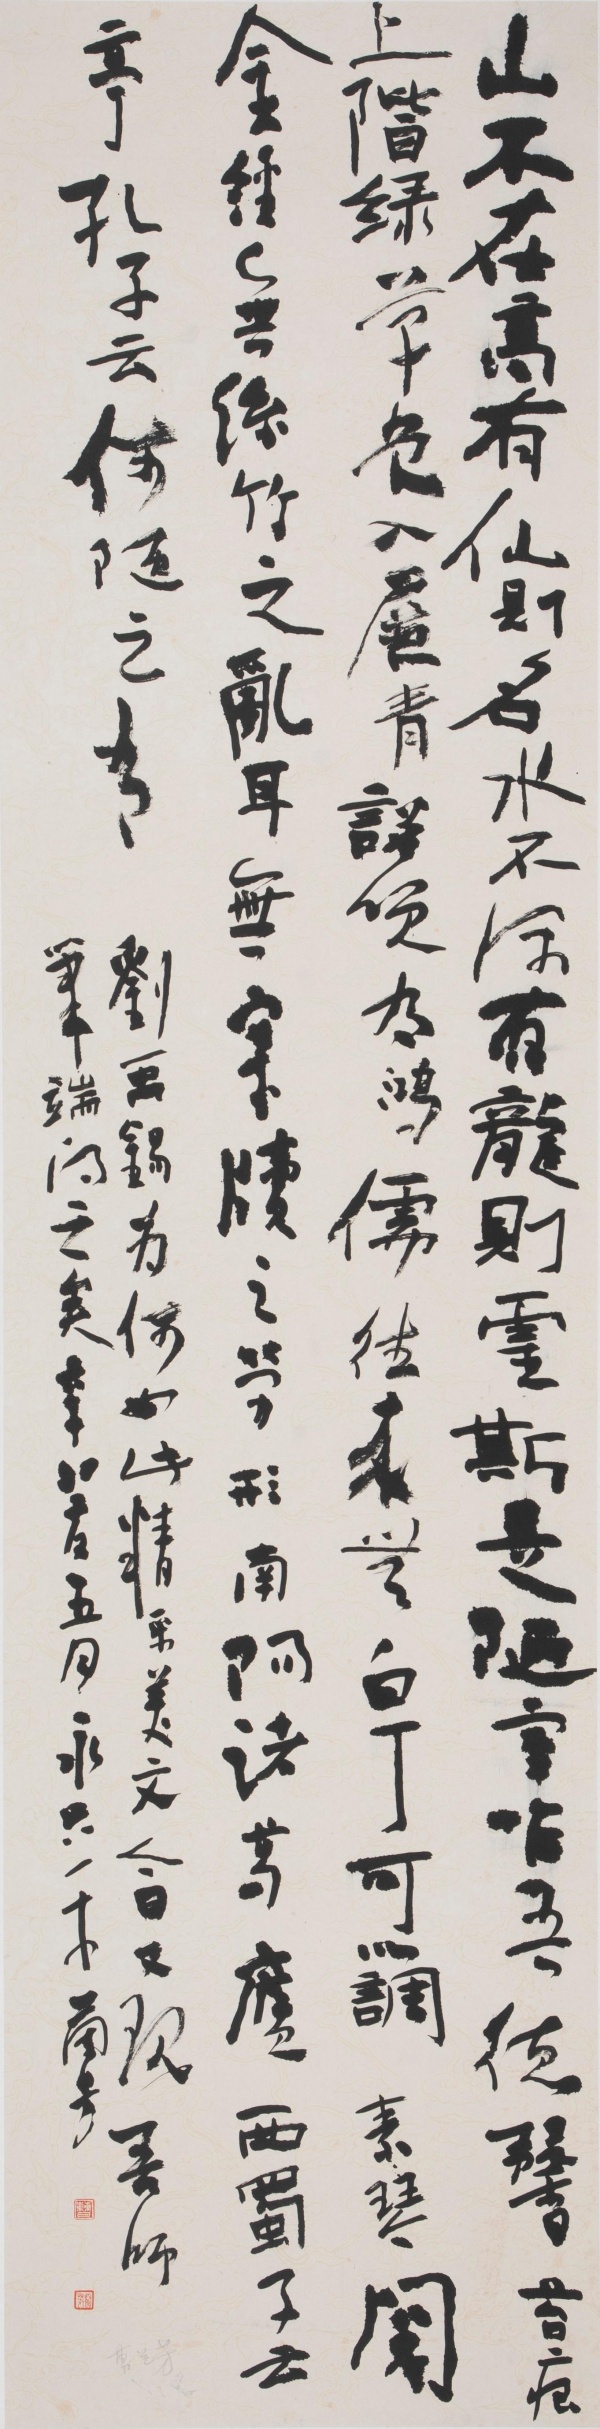 山不在高有仙則名水不深有龍則靈斯是陋室唯吾德馨苔痕
上階綠草色入簾青談笑有鴻儒往來無白丁可以調素琴閱
金經無絲竹之亂耳無案牘之勞形南陽諸葛廬西蜀子云
亭孔子云何陋之有
劉禹錫為何如此精采美文今日又現吾師
筆端得之矣辛卯五月永